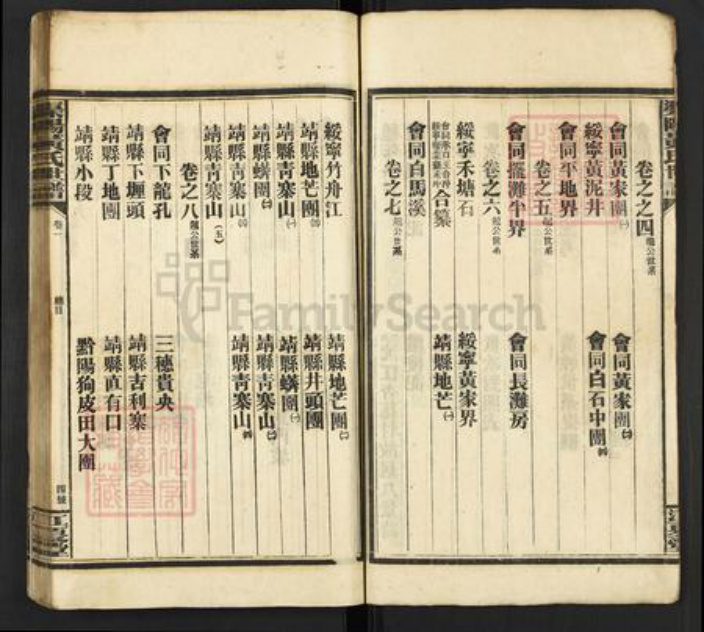 卷之之四
會同黃家團㈠ 會同黃家團㈡
綏寧黃泥井 會同白石中團㈣
會同平地界
卷之五
會同擺灘半界 會同長灘房
卷之六
綏寧禾塘石 綏寧黃家界
合纂 靖縣地芒㈠
會同白馬溪
卷之七
綏寧竹舟江 靖縣地芒團㈡
靖縣地芒團 靖縣井頭團
靖縣青寨山㈠ 靖縣蟒團㈠
靖縣蟒團㈡ 靖縣青寨山㈡
靖縣青寨山 靖縣青寨山㈣
靖縣青寨山(五)
卷之八
會同下龍孔 三穗貴央
靖縣下堰頭 靖縣吉利寨
靖縣丁地團 靖縣直有口
靖縣小段 黔陽狗皮田大團
卷一
總目
FamilySearch